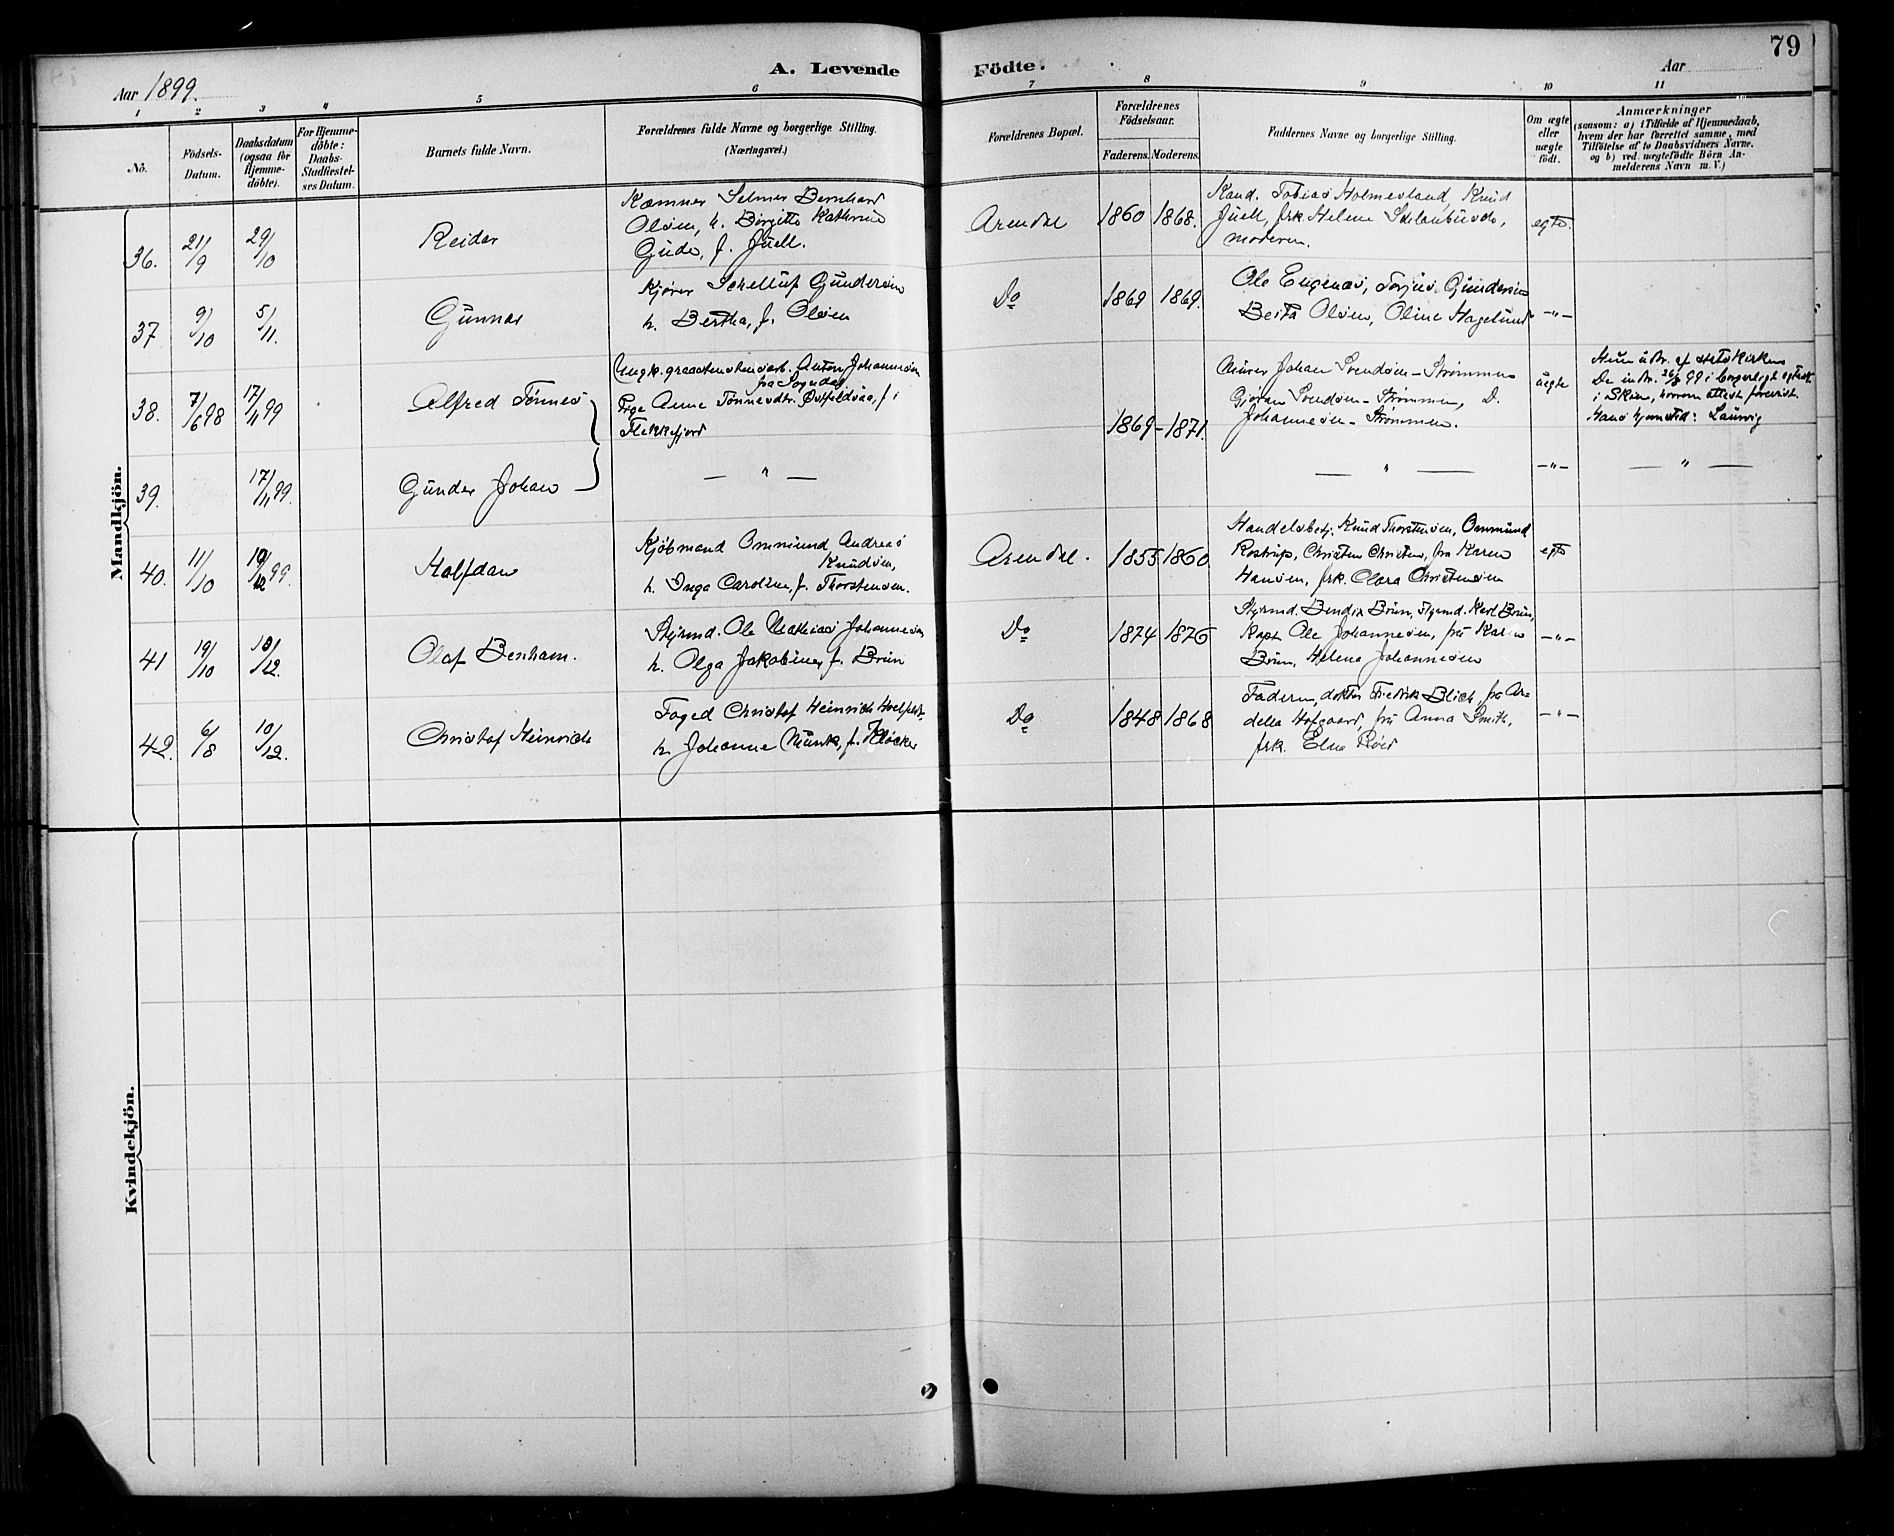 79
A. Levende Födte.
Aar 1899.
Aar
1 2 3 4 5 6 7 8 9 10 11
No.
Födsels-
Datum.
Daabsdatum
(ogsaa for
Hjemme-
døbte).
For Hjemme-
döbte:
Daabs-
Stadfæstel-
ses Datum.
Barnets fulde Navn.
Forældrenes fulde Navne og borgerlige Stilling.
(Næringsvei.)
Forældrenes Bopæl.
Forældrenes
Födselsaar.
Faderens. Moderens.
Faddernes Navne og borgerlige Stilling.
Om ægte
eller
uægte
födt.
Anmærkninger
(saasom: a) i Tilfælde af Hjemmedaab,
hvem der har forrettet samme, med
Tilföielse af to Daabsvidners Navne.
og b) ved uægtefödte Börn An-
melderens Navn m. V.)
Mandkjön.
36. 21/9 29/10
Reidar
Kæmner Selmer Bernhard
Olsen, h. Birgitte Kathrine
Gude, f. Juell.
Arendal
1860 1868.
Kand. Tobias Holmesland, Knud
Juell, frk. Helene
moderen.
egte.
37 9/10 5/11.
Gunnar
Kjører Schellup Gundersen
h. Bertha, f. Olsen
Do
1869 1869.
Ole Eugenæs, Torjus Gundersen
Berta Olsen, Oline Hagelund
-"-
38. 7/6 98 17/11 99
Alfred Tönnes
Ungk. graastensarb. Anton Johannesen
fra Sogndal
Pige Anne Tönnesdtr. f. i
Flekkefjord
1869-1871.
Murer Johan Svendsen-Strømmen
Gjøran Svendsen-Strømmen, D.
Johannesen-Strømmen.
uegte
Hun udtr. af statskirken
De indtr. 99 i borgerligt egtesk.
i Skien, hvorom attest forevist
Hans hjemsted: Laurvig
39. 17/11 99.
Gunder Johan
— " —
— " —
-"-
— " —
40. 11/10 10/12 99.
Halfdan
Kjöbmand Ommund Andreas
Knudsen,
h. Inga Caroline, f. Thorstensen.
Arendal.
1855 1860.
Handelsbetj. Knud Thorstensen, Ommund
Rostrup, Christen Christensen, fru Karen
Hansen, frk. Clara Christensen
egte
41 19/10 10/12.
Olaf Benham.
Styrmd. Ole Mathias Johannesen
h. Olga Jakobine, f. Brun
Do
1874 1876
Styrmd. Bendix Brun, styrmd. Karl Brun,
Kapt. Ole Johannesen, fru Karen
Brun, Helene Johannesen
-"-
42. 6/8 10/12.
Christof Heinrich
Foged Christof Heinrich
h. Johanne Munk, f. Kløcker
Do
1848 1868
Faderen, doktor Fredrik Blich, fru A-
della Hofgaard, fru Anna Smith,
frk. Elna
-"-
Kvindekjön.